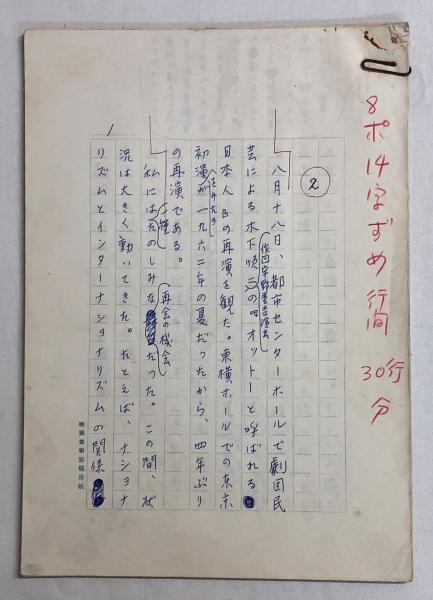 8ポ14字ずめ行間
30行分
2
八月十八日、都市センターホールで劇団民
宇野重吉演出
芸による木下順二の『オットーと呼ばれる
日本人』の再演を観た。東横ホールでの東京
初演が一九六二年の夏だったから、四年ぶり
の再演である。
再会の機会
私にはたのしみなだった。この間、状
況は大きく動いてきた。たとえば、ナショナ
リズムとインターナショナリズムの関係